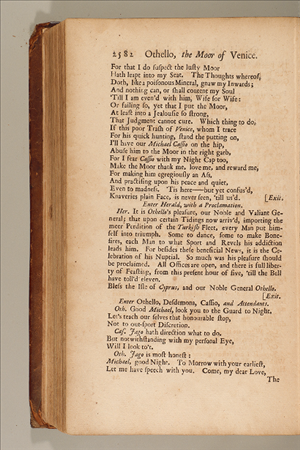 2582 Othello, the Moor of Venice.
For that I do suspect the lusty Moor
Hath leapt into my Seat. The Thoughts whereof,
Doth, like a poisonous Mineral, gnaw my Inwards;
And nothing can, or shall content my Soul
'Till I am even'd with him, Wife for Wife:
Or failing so, yet that I put the Moor,
At least into a Jealousie so strong,
That Judgment cannot cure. Which thing to do,
If this poor Trash of Venice, whom I trace
For his quick hunting, stand the putting on,
I'll have our Michael Cassio on the hip,
Abuse him to the Moor in the right garb,
For I fear Cassio with my Night Cap too,
Make the Moor thank me, love me, and reward me,
For making him egregiously an Ass,
And practising upon his peace and quiet,
Even to madness. 'Tis here——but yet confus'd,
Knaveries plain Face, is never seen, 'till us'd. [Exit.
Enter Herald, with a Proclamation.
Her. It is Othello's pleasure, our Noble and Valiant Ge-
neral; that upon certain Tidings now arriv'd, importing the
meer Perdition of the Turkish Fleet, every Man put him-
self into triumph. Some to dance, some to make Bone-
fires, each Man to what Sport and Revels his addiction
leads him. For besides these beneficial News, it is the Ce-
lebration of his Nuptial. So much was his pleasure should
be proclaimed. All Offices are open, and there is full liber-
ty of Feasting, from this present hour of five, 'till the Bell
have toll'd eleven.
Bless the Isle of Cyprus, and our Noble General Othello.
[Exit.
Enter Othello, Desdemona, Cassio, and Attendants.
Oth. Good Michael, look you to the Guard to Night.
Let's teach our selves that honourable stop,
Not to out-sport Discretion.
Cas. Jago hath direction what to do.
But notwithstanding with my personal Eye,
Will I look to't.
Oth. Jago is most honest:
Michael, good Night. To Morrow with your earliest,
Let me have speech with you. Come, my dear Love,
The